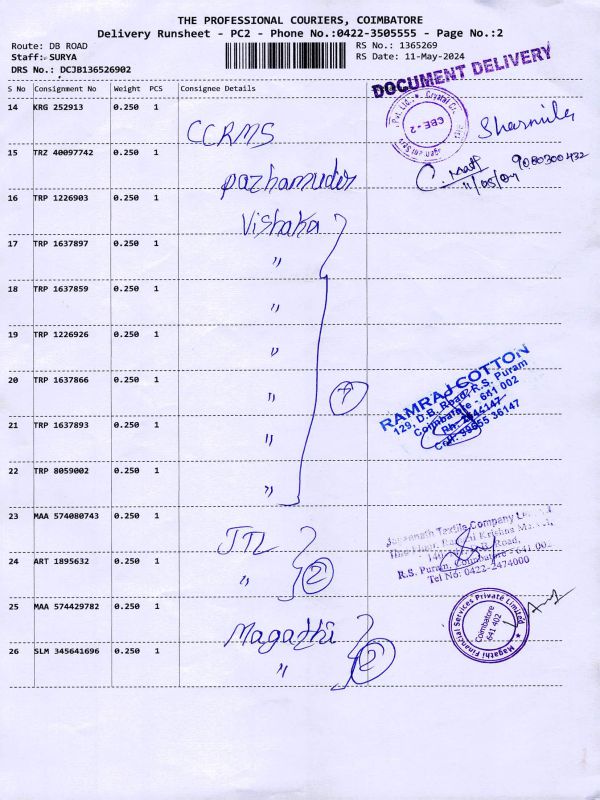 THE PROFESSIONAL COURIERS, COIMBATORE
Delivery Runsheet - PC2 - Phone No.:0422-3505555 - Page No.:2
Route: DB ROAD
RS No.: 1365269
Staff: SURYA
RS Date: 11-May-2024
DRS No.: DCJB136526902
DOCUMENT DELIVERY
S No Consignment No Weight PCS Consignee Details
14 KRG 252913 0.250 1
CCRMS
CBE-2
Sharmila
15 TRZ 40097742 0.250 1
pazhamudir
9080300432
16 TRP 1226903 0.250 1
Vishaka
17 TRP 1637897 0.250 1
"
18 TRP 1637859 0.250 1
"
19 TRP 1226926 0.250 1
"
20 TRP 1637866 0.250 1
"
7
RAMRAJ COTTON
129, D.B. Road, R.S. Puram
Coimbatore - 641 002
Cell: 99655 36147
21 TRP 1637893 0.250 1
"
22 TRP 8059002 0.250 1
"
23 MAA 574080743 0.250 1
JTL
Textile Company
24 ART 1895632 0.250 1
"
2
R.S. Puram, Coimbatore - 641 002
Tel No: 0422-2474000
25 MAA 574429782 0.250 1
Magathi
Magathi Financial Services Private Limited
Coimbatore
641 402
26 SLM 345641696 0.250 1
"
2